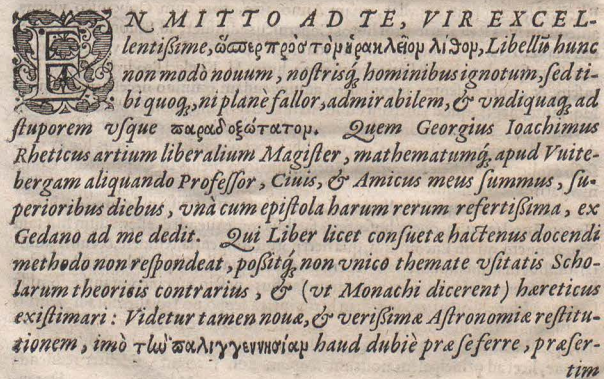 EN MITTO AD TE, VIR EXCEL-
lentißime, ὥσπερ πρὸς τὸμ ἡρακλεῖομ λίθομ, Libellū hunc
non modò nouum, nostrisq́; hominibus ignotum, sed ti-
bi quoq;, ni planè fallor, admirabilem, & vndiquaq; ad
stuporem vsque παραδοξώτατομ. Quem Georgius Ioachimus
Rheticus artium liberalium Magister, mathematumq́; apud Vuite-
bergam aliquando Professor, Ciuis, & Amicus meus summus, su-
perioribus diebus, vnà cum epistola harum rerum refertißima, ex
Gedano ad me dedit. Qui Liber licet consuetæ hactenus docendi
methodo non respondeat, poßitq́; non vnico themate vsitatis Scho-
larum theoriis contrarius, & (vt Monachi dicerent) hæreticus
existimari: Videtur tamen nouæ, & verißimæ Astronomiæ restitu-
tionem, imò τὴν παλιγγεννησίαμ haud dubiè præ se ferre, præser-
tim